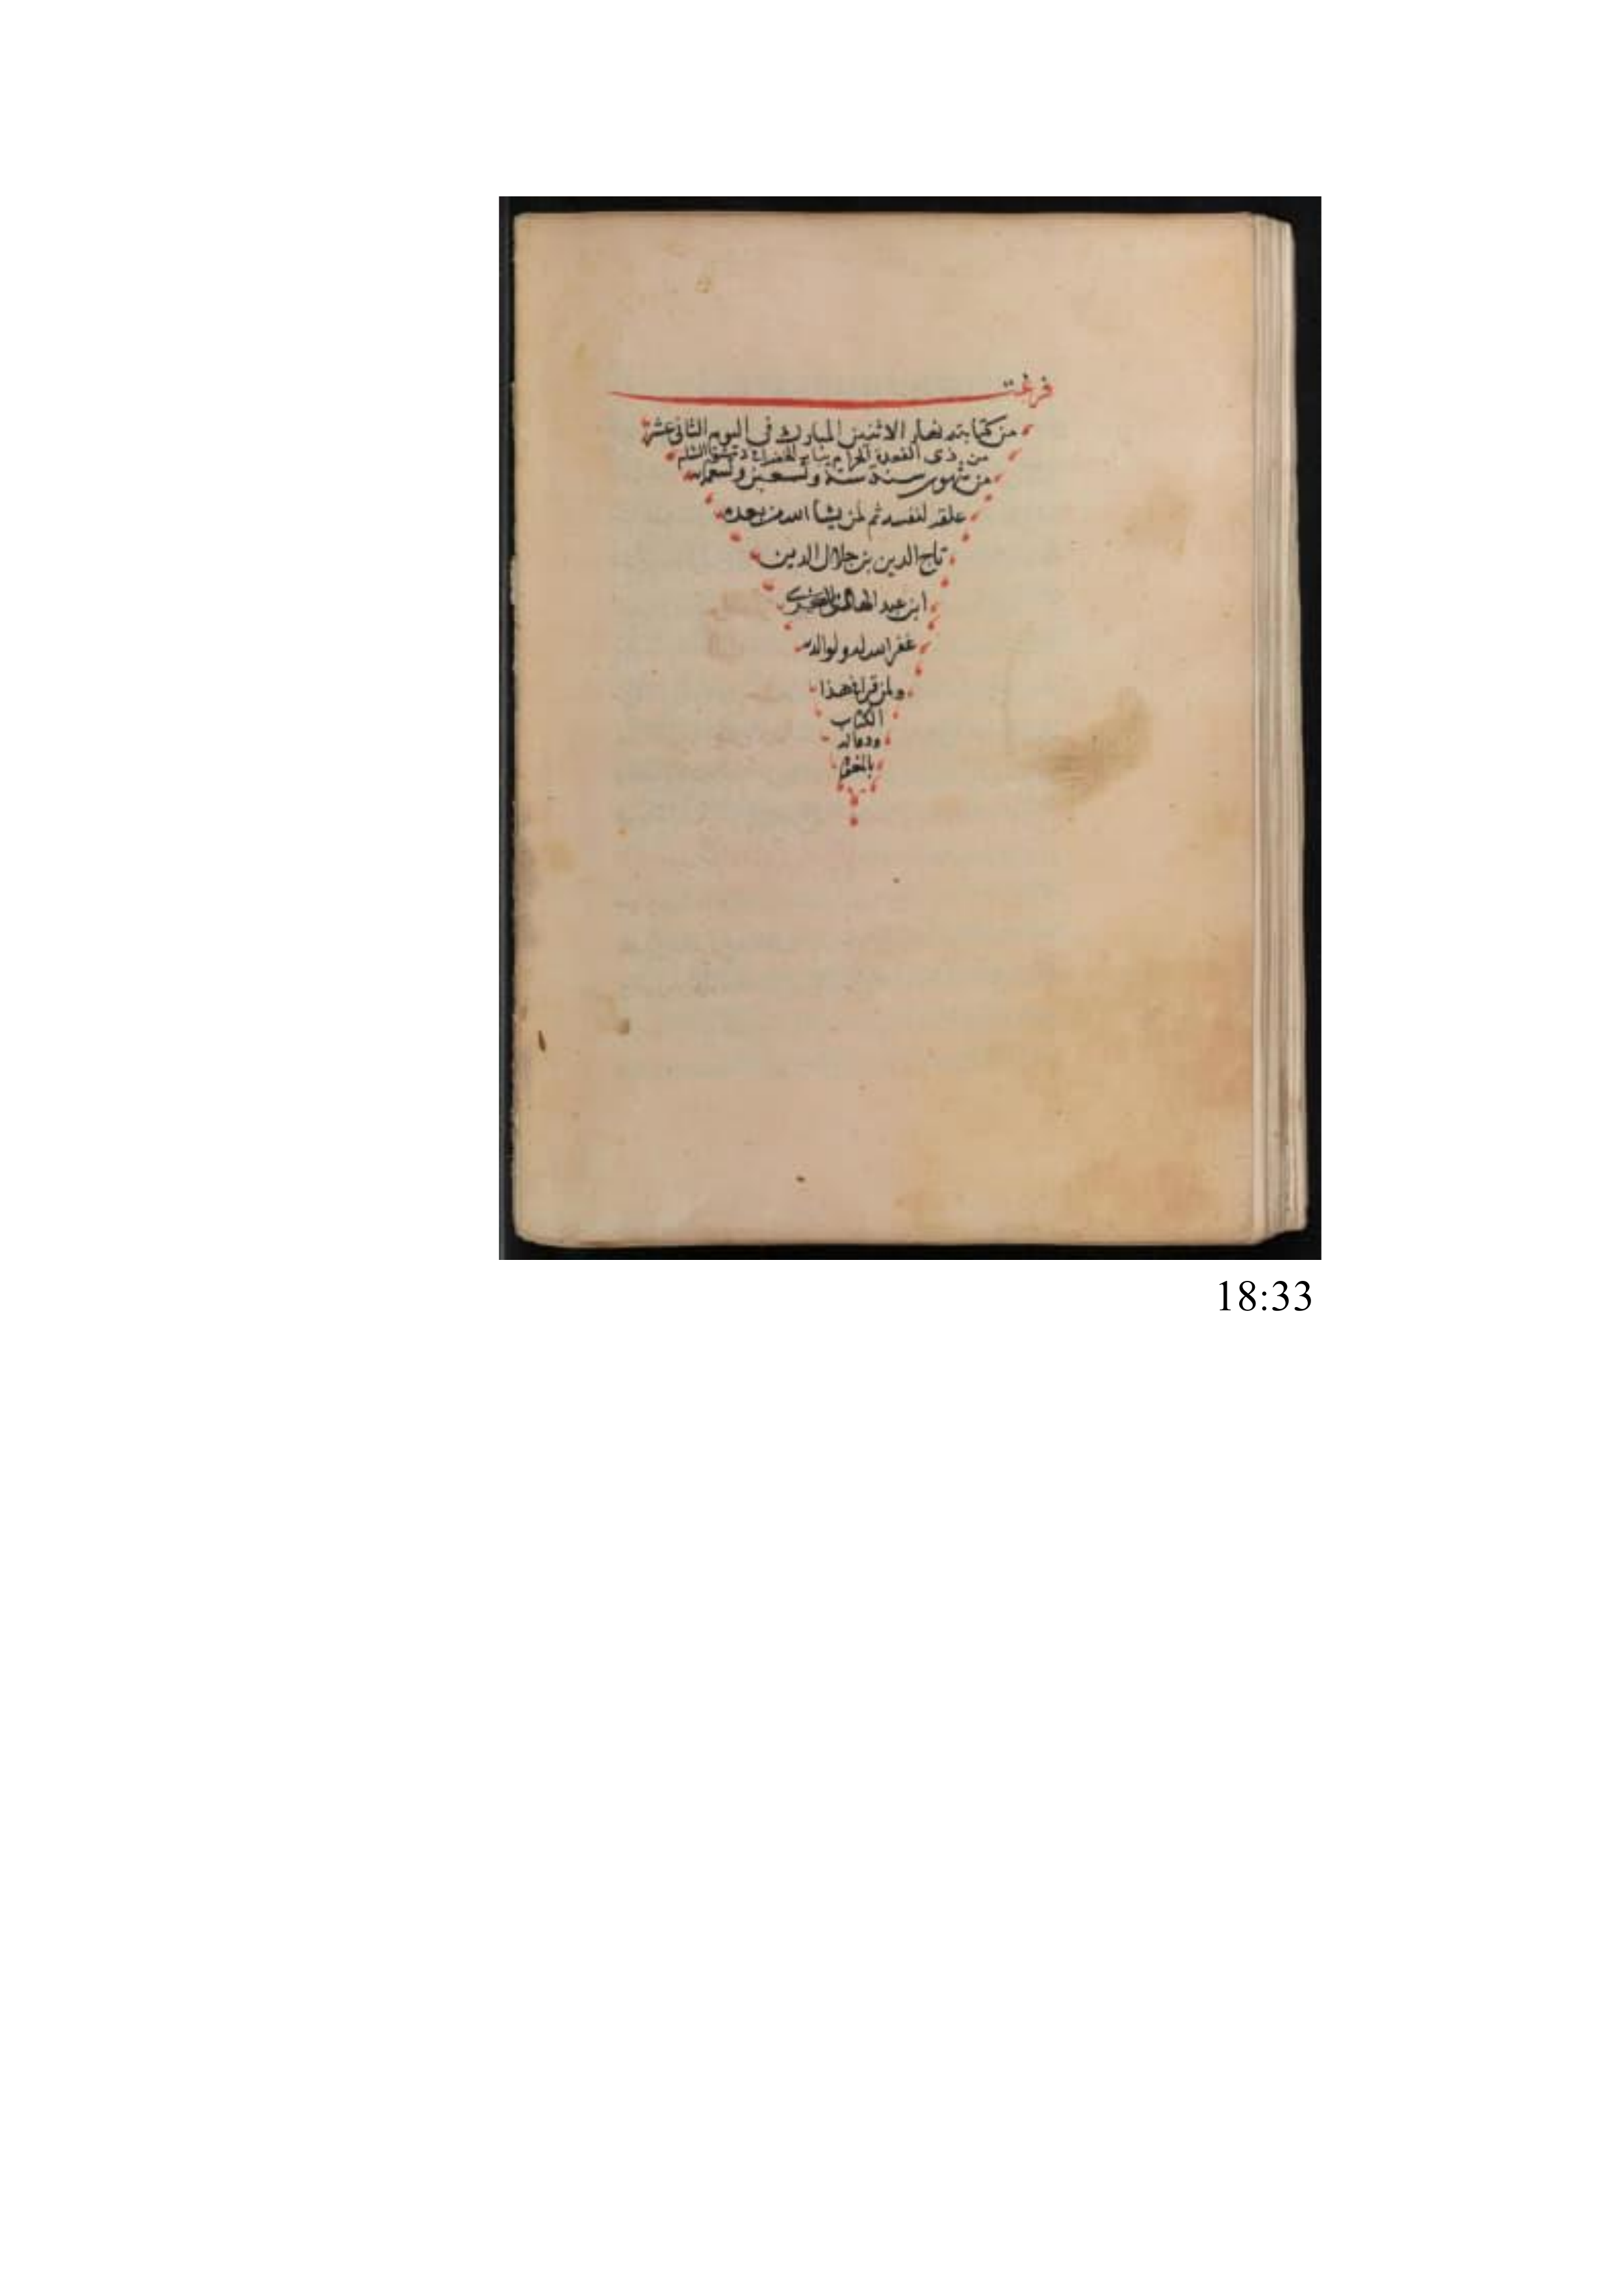 فرغت
من كتابته نهار الاثنين المبارك في اليوم الثاني عشر
من ذى القعدة الحرام دمشق الشام
من شهور سنة ستة وتسعين وتسعمائة
علقه لنفسه ثم لمن يشا الله من بعده
تاج الدين بن جلال الدين
ابن عبد
غفر الله له ولوالديه
ولمن قرا في هذا
الكتاب
ودعا له
بالمغفرة
18:33